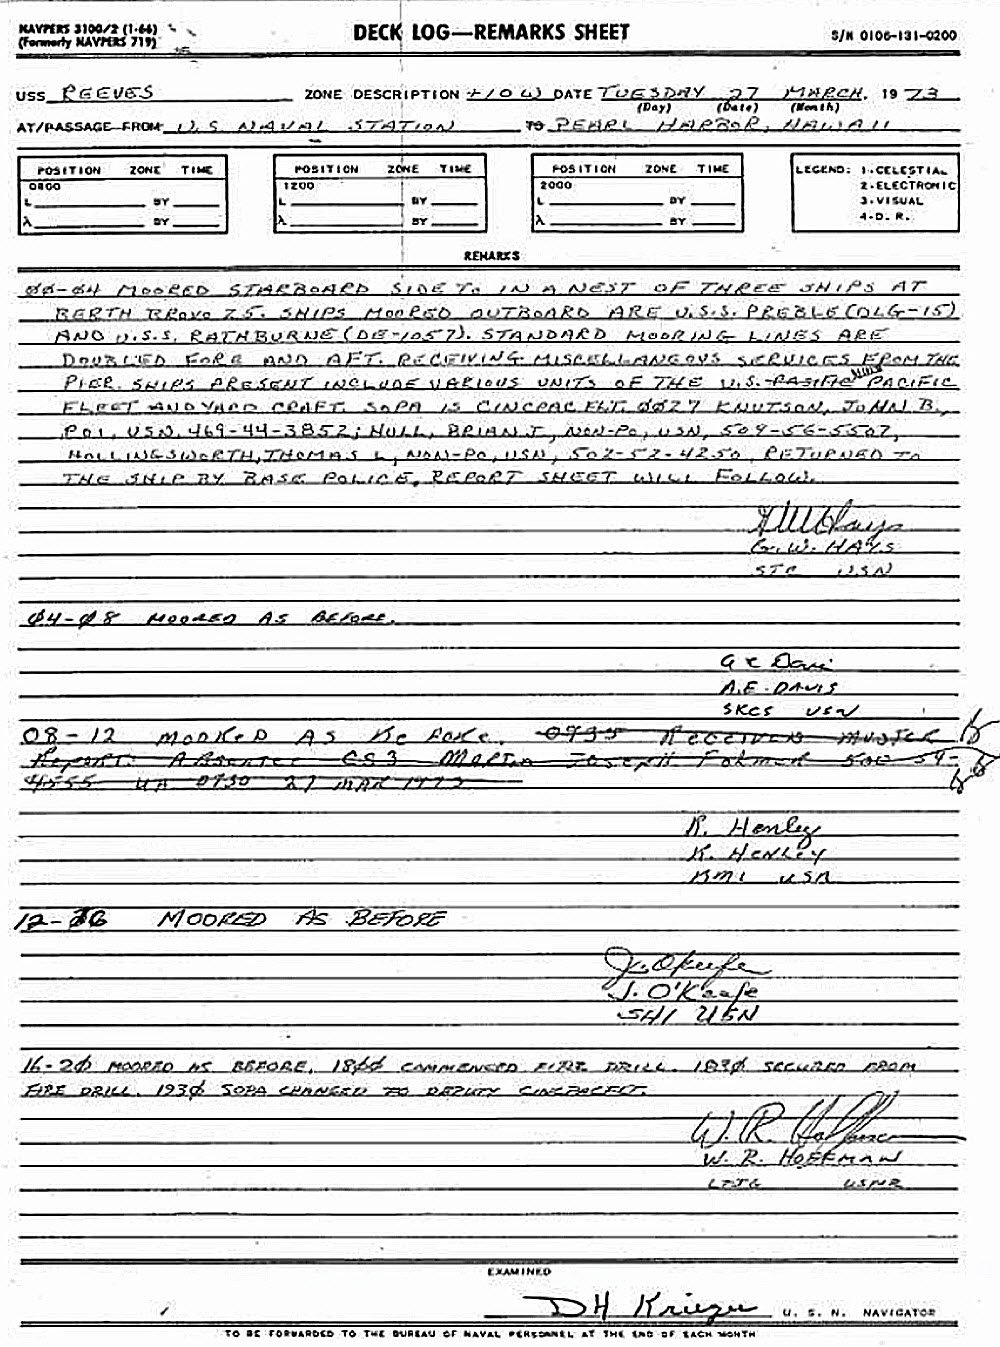 NAVPERS 3100/2 (1-66)
(Formerly NAVPERS 719)
DECK LOG—REMARKS SHEET
S/N 0106-131-0200
USS REEVES ZONE DESCRIPTION +10W DATE TUESDAY 27 MARCH, 1973
(Day) (Date) (Month)
AT/PASSAGE FROM U.S NAVAL STATION TO PEARL HARBOR, HAWAII
POSITION ZONE TIME
0800
L BY
λ BY
POSITION ZONE TIME
1200
L BY
λ BY
POSITION ZONE TIME
2000
L BY
λ BY
LEGEND: 1-CELESTIAL
2-ELECTRONIC
3-VISUAL
4-D. R.
REMARKS
00-04 MOORED STARBOARD SIDE TO IN A NEST OF THREE SHIPS AT
BERTH BRAVO 25. SHIPS MOORED OUTBOARD ARE U.S.S. PREBLE (DLG-15)
AND U.S.S. RATHBURNE (DE-1057). STANDARD MOORING LINES ARE
DOUBLED FORE AND AFT. RECEIVING MISCELLANEOUS SERVICES FROM THE
PIER. SHIPS PRESENT INCLUDE VARIOUS UNITS OF THE U.S. PACIFIC
FLEET AND YARD CRAFT. SOPA IS CINCPACFLT. 0027 KNUTSON, JOHN B.,
PO1, USN, 469-44-3852; HULL, BRIAN J, NON-PO, USN, 509-56-5507,
HOLLINGSWORTH, THOMAS L, NON-PO, USN, 502-52-4250, RETURNED TO
THE SHIP BY BASE POLICE, REPORT SHEET WILL FOLLOW.
G.W. HAYS
STC USN
04-08 MOORED AS BEFORE.
A E Davis
A.E. DAVIS
SKCS USN
08-12 MOORED AS BEFORE. 0735 RECEIVED MUSTER
REPORT: ABSENTEE CS3 MARTIN JOSEPH FORMER
4555 UA 0730 27 MAR 1973
R. Henley
R. HENLEY
BM1 USN
12-16 MOORED AS BEFORE
J. O'Keefe
J. O'Keefe
SH1 USN
16-20 MOORED AS BEFORE. 1800 COMMENCED FIRE DRILL. 1830 SECURED FROM
FIRE DRILL. 1930 SOPA CHANGED TO DEPUTY CINCPACFLT.
W. R. Hoffman
W. R. HOFFMAN
LTJG USNR
EXAMINED
DH Krieger U. S. N. NAVIGATOR
TO BE FORWARDED TO THE BUREAU OF NAVAL PERSONNEL AT THE END OF EACH MONTH